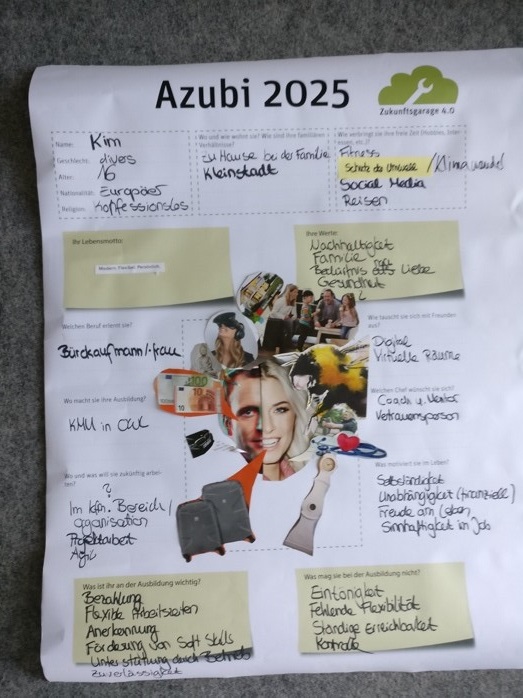 Azubi 2025
Zukunftsgarage 4.0
Name: Kim
Geschlecht: divers
Alter: 16
Nationalität: Europäer
Religion: Konfessionslos
Wo und wie wohnt sie? Wie sind ihre familiären Verhältnisse?
Zu Hause bei der Familie
Kleinstadt
Wie verbringt sie ihre freie Zeit (Hobbies, Interessen, etc.)?
Fitness
Schutz der Umwelt / Klimawandel
Social Media
Reisen
Ihr Lebensmotto:
Modern Flexibel Persönlich
Ihre Werte:
Nachhaltigkeit
Familie
Bedürfnis nach Liebe
Gesundheit
Welchen Beruf erlernt sie?
Bürokaufmann/-frau
Wie tauscht sie sich mit Freunden aus?
Digital
Virtuelle Räume
Wo macht sie ihre Ausbildung?
KMU in OWL
Welchen Chef wünscht sie sich?
Coach u. Mentor
Vertrauensperson
Wo und was will sie zukünftig arbeiten?
?
Im kfm. Bereich /
Organisation
Projektarbeit
Agil
Was motiviert sie im Leben?
Selbständigkeit
Unabhängigkeit (finanziell)
Freude am Leben
Sinnhaftigkeit im Job
Was ist ihr an der Ausbildung wichtig?
Bezahlung
Flexible Arbeitszeiten
Anerkennung
Förderung von Soft Skills
Unterstützung durch Betrieb
Zuverlässigkeit
Was mag sie bei der Ausbildung nicht?
Eintönigkeit
Fehlende Flexibilität
Ständige Erreichbarkeit
Kontrolle